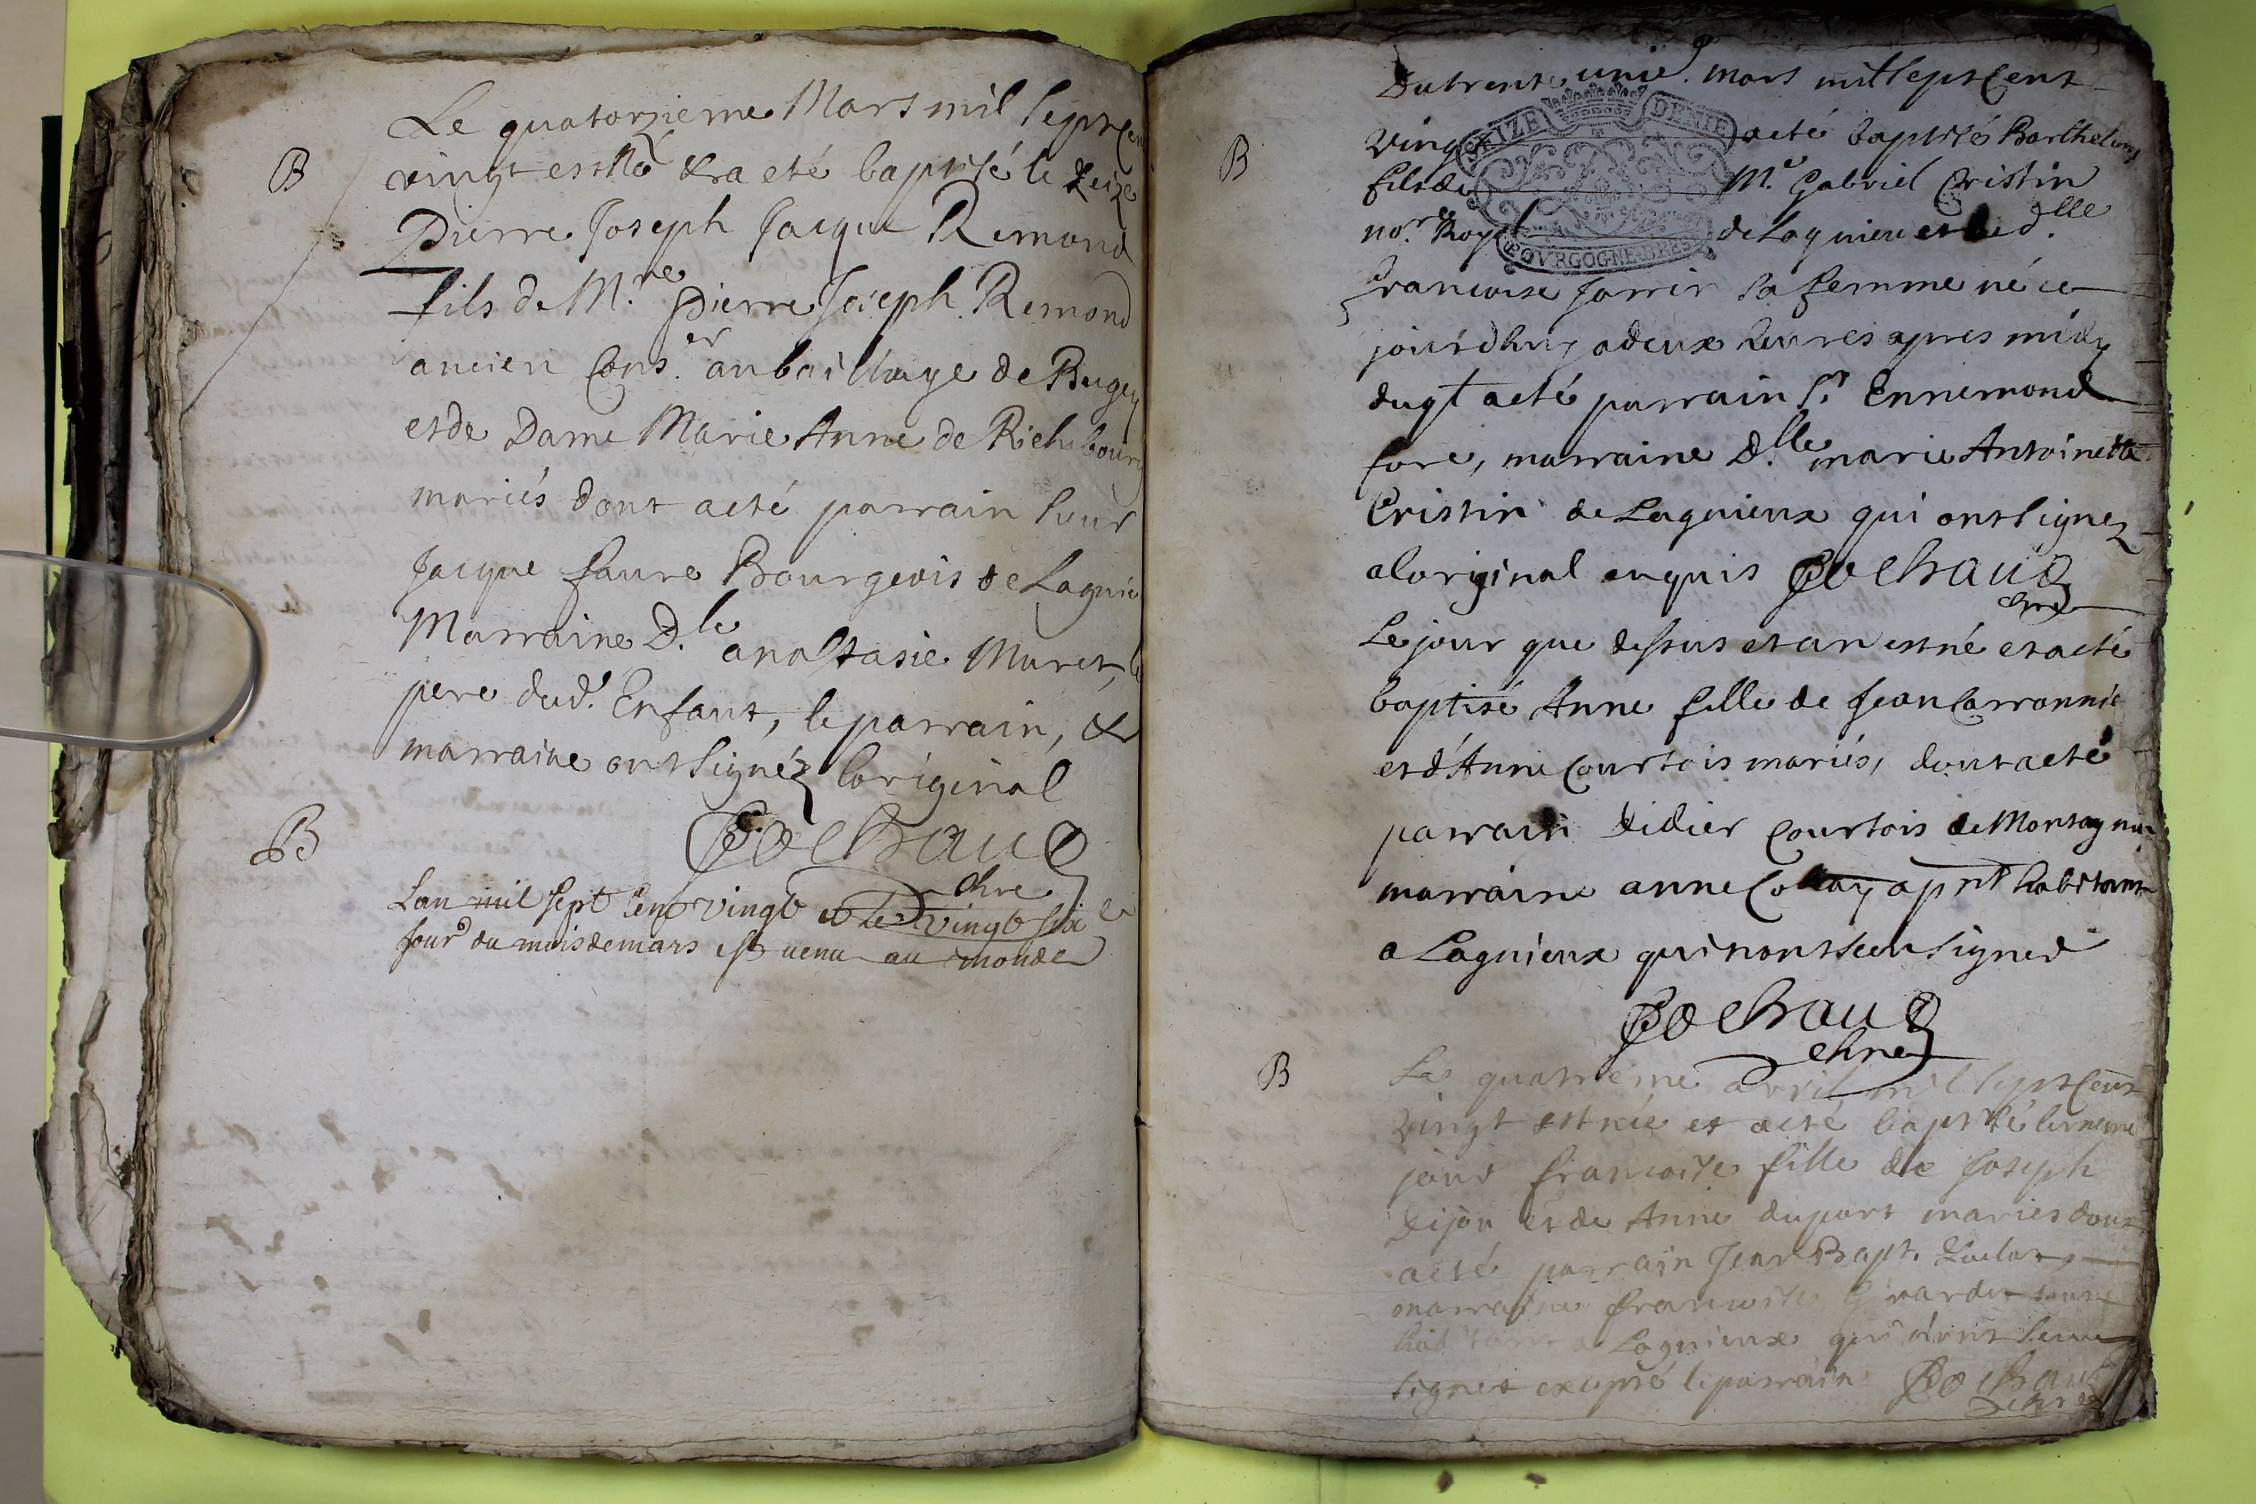 B
Le quatorzieme Mars mil sept cent
vingt est né & a eté baptisé le seize
Pierre Joseph Jacque Remond
fils de M.re Pierre Joseph Remond
ancien Cons.er au bailliage de Bugey
et de Dame Marie Anne de Richebourg
mariés dont a eté parrain sieur
Jacque faure Bourgeois de Lagnieu
Marraine D.le anastasie Muret, le
pere dud.t Enfant, le parrain, &
marraine ont signéz loriginal
Pochaud
chre
B
Lan mil sept cent vingt et le vingt six
jour du mois de mars est venu au monde
Du trente unie. mars mil sept Cent
B
Vingt a eté baptisé Barthelemy
fils de M.e Gabriel Cristin
no.re Royal de Lagnieu et de d.lle
francoise Jarrin sa femme né ce
jourd'huy a deux heures apres midy
dugt a eté parrain s.r Ennemond
fore, marraine D.lle marie Antoinette
Cristin de Lagnieux qui ont signez
a loriginal enquis Pochaud
chre
Le jour que dessus et an est né et a eté
baptisé Anne fille de Jean Carronnie
et d'Anne Courtois mariés, dont a eté
parrain Didier Courtois de Montagnieu
marraine anne Collay a pnt habitant
a Lagnieux qui n'ont sceu signer
Pochaud
chre
B
Le quatrieme avril mil sept cent
vingt est née et a eté baptisé le meme
jour francoise fille de Joseph
Dijon et de Anne duport mariés dont
a eté parrain Jean Bapt.
marraine francoise Girardet
habitant a Lagnieux qui n'ont sceu
signer excepté le parrain Pochaud
chre